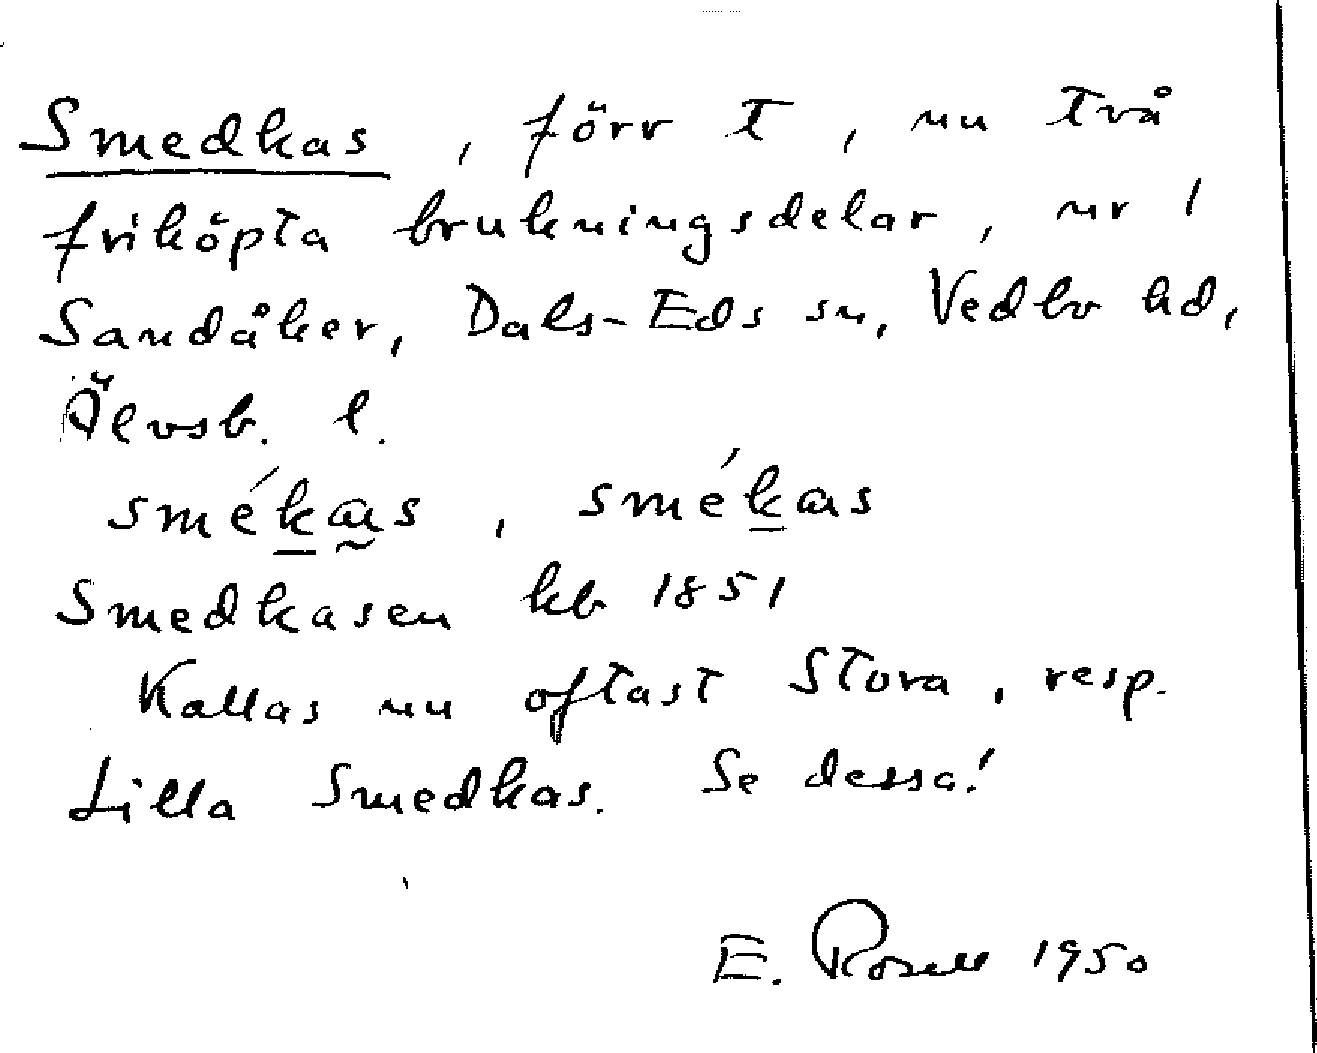 Smedkas, förr T, nu två
friköpta brukningsdelar, nr 1
Sandåker, Dals-Eds sn, Vedbo hd,
Älvsb. l.
smékas, smékas
Smedkasen kb 1851
Kallas nu oftast Stora, resp.
Lilla Smedkas. Se dessa!
E. Rosell 1950